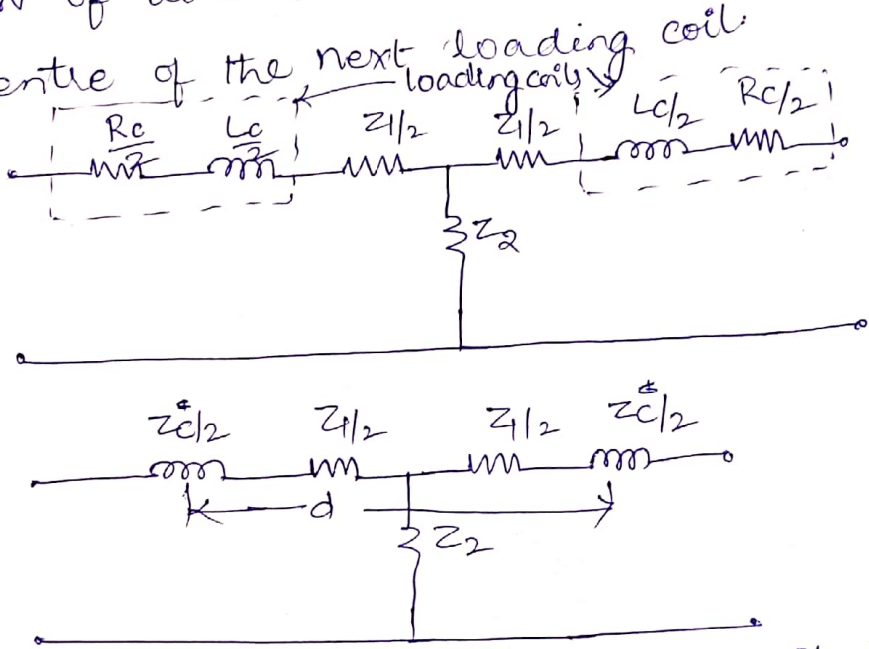 of
entre of the next loading coil.
loading coils
Rc/2 Lc/2 Z1/2 Z1/2 Lc/2 Rc/2
Z2
Zc/2 Z1/2 Z1/2 Zc/2
d
Z2